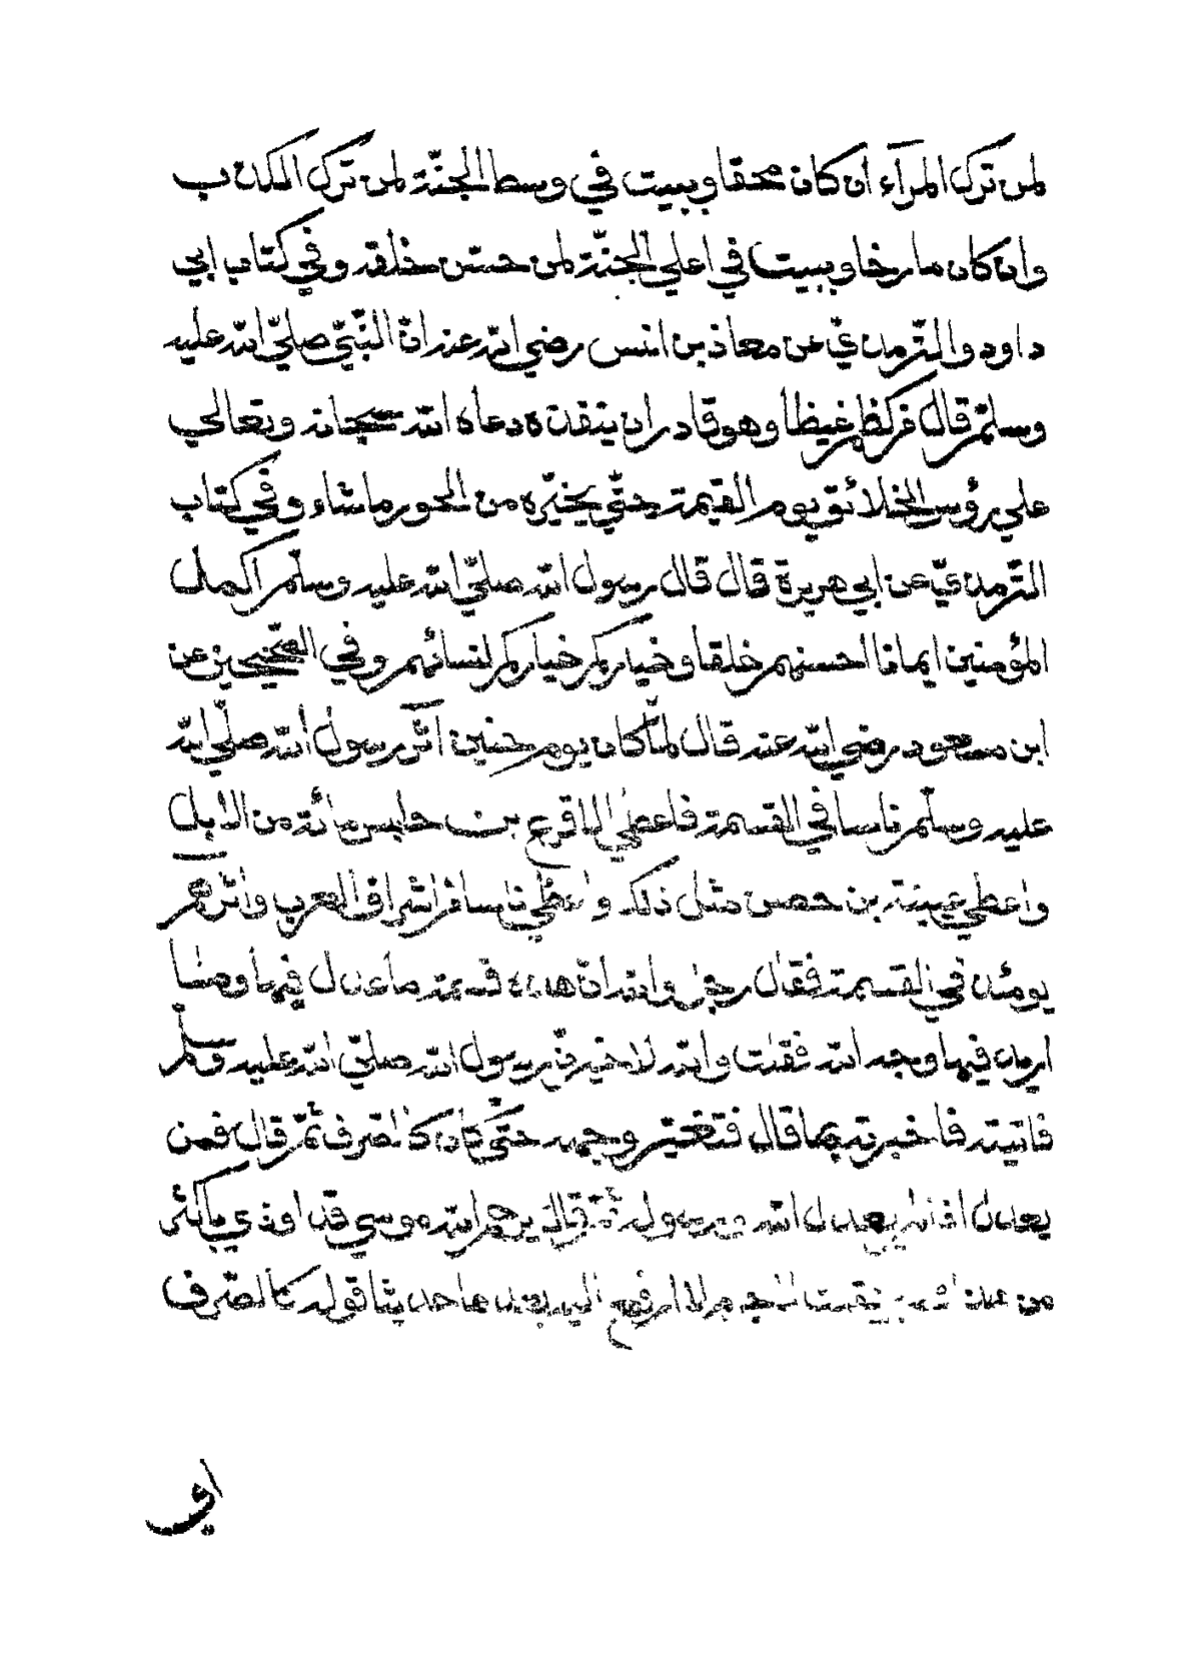 لمن ترك المرآء ان كان محقا وببيت في وسط الجنّة لمن ترك الكذب
وان كان مازحا وببيت في اعلي الجنّة لمن حسن خلقه وفي كتاب ابي
داود والترمذيّ عن معاذ بن انس رضي الله عنه انّ النّبيّ صليّ الله عليه
وسلّم قال من كظم غيظا وهو قادر ان ينفذه دعاه الله سبحانه وتعالي
علي رؤس الخلائق يوم القيمة حتّي يخيّره من الحور ماشاء وفي كتاب
الترمذيّ عن ابي هريرة قال قال رسول الله صليّ الله عليه وسلّم اكمل
المؤمنين ايمانا احسنهم خلقا وخياركم خياركم لنسائهم وفي الصّحيحين عن
ابن مسعود رضي الله عنه قال لمّا كان يوم حنين آثر رسول الله صليّ الله
عليه وسلّم ناسا في القسمة فاعطي الاقرع بن حابس مائة من الابل
واعطي عيينة بن حصن مثل ذلك واعطي ناسا من اشراف العرب واثرهم
يومئذ في القسمة فقال رجل والله انّ هذه قسمة ما عدل فيها وما
اريد فيها وجه الله فقلت والله لاخبرنّ رسول الله صليّ الله عليه وسلّم
فاتيته فاخبرته بما قال فتغيّر وجهه حتّي كان كالصّرف ثمّ قال فمن
يعدل اذا لم يعدل الله ورسوله ثمّ قال يرحم الله موسي قد اوذي باكثر
من هذا فصبر فقلت لا جرم لا ارفع اليه بعدها حديثا قوله كالصّرف